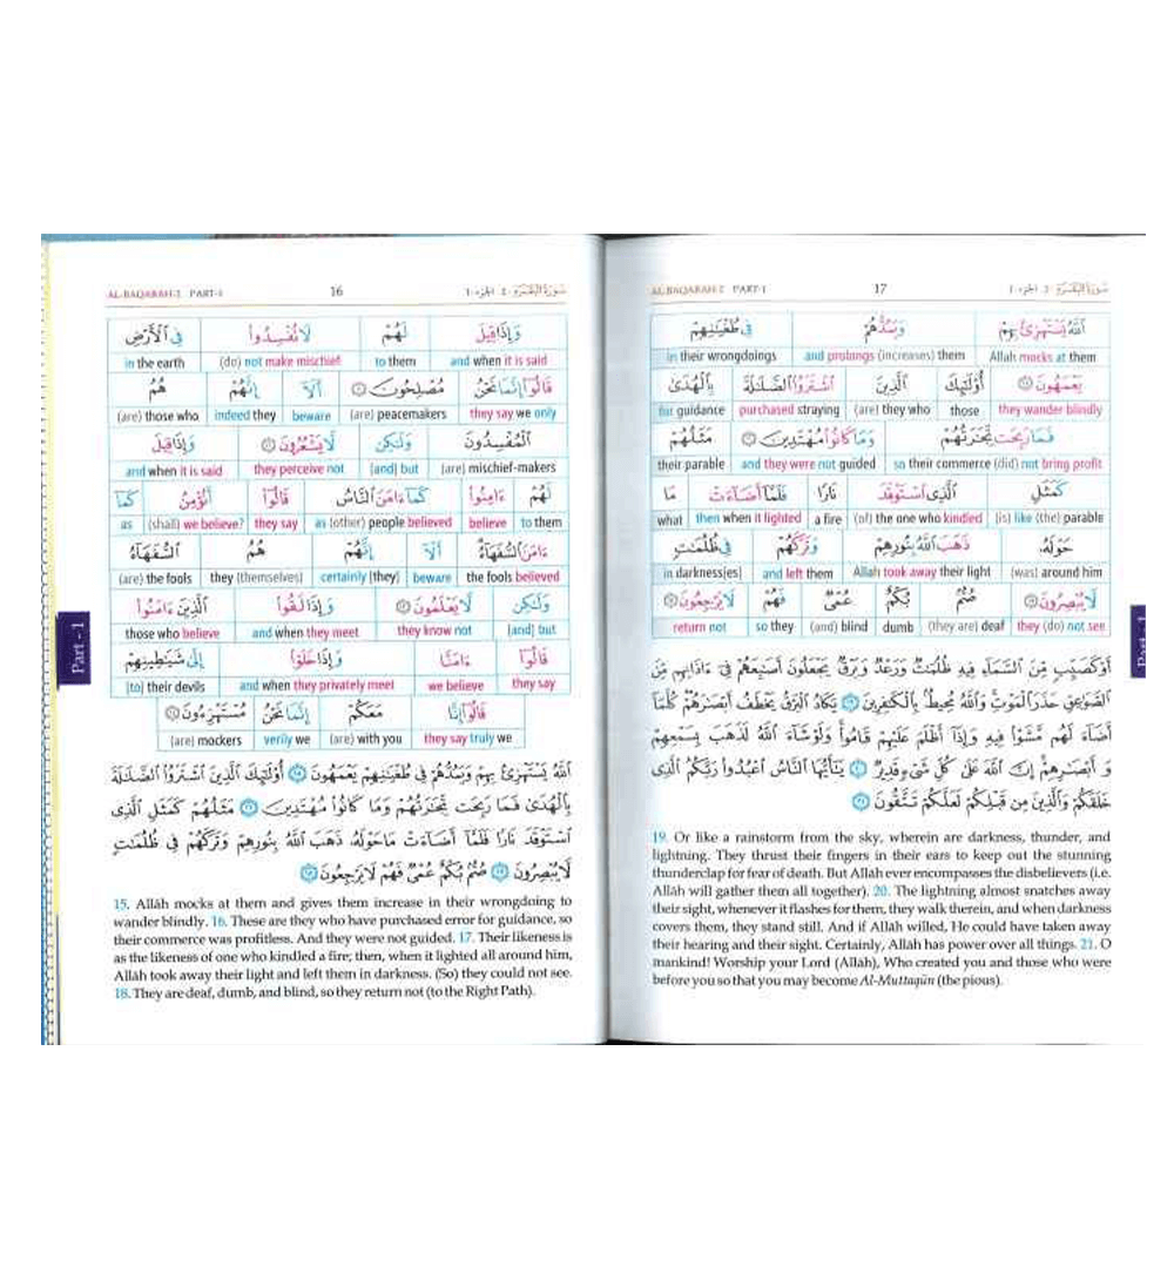 AL-BAQARAH-2 PART-1 16 سورة البقرة-٢ الجزء-١
وَإِذَا قِيلَ لَهُمْ لَا تُفْسِدُوا فِي الْأَرْضِ
and when it is said to them (do) not make mischief in the earth
قَالُوٓا إِنَّمَا نَحْنُ مُصْلِحُونَ ١١ أَلَآ إِنَّهُمْ هُمُ
they say we only (are) peacemakers beware indeed they (are) those who
الْمُفْسِدُونَ وَلَٰكِن لَّا يَشْعُرُونَ ١٢ وَإِذَا قِيلَ
(are) mischief-makers [and] but they perceive not and when it is said
لَهُمْ ءَامِنُوا كَمَآ ءَامَنَ النَّاسُ قَالُوٓا أَنُؤْمِنُ كَمَآ
to them believe as (other) people believed they say (shall) we believe? as
ءَامَنَ السُّفَهَآءُ أَلَآ إِنَّهُمْ هُمُ السُّفَهَآءُ
the fools believed beware certainly [they] they (themselves) (are) the fools
وَلَٰكِن لَّا يَعْلَمُونَ ١٣ وَإِذَا لَقُوا الَّذِينَ ءَامَنُوا
[and] but they know not and when they meet those who believe
قَالُوٓا ءَامَنَّا وَإِذَا خَلَوْا إِلَىٰ شَيَٰطِينِهِمْ
they say we believe and when they privately meet [to] their devils
قَالُوٓا إِنَّا مَعَكُمْ إِنَّمَا نَحْنُ مُسْتَهْزِءُونَ ١٤
they say truly we (are) with you verily we (are) mockers
اللَّهُ يَسْتَهْزِئُ بِهِمْ وَيَمُدُّهُمْ فِي طُغْيَٰنِهِمْ يَعْمَهُونَ ١٥ أُولَٰٓئِكَ الَّذِينَ اشْتَرَوُا الضَّلَٰلَةَ
بِالْهُدَىٰ فَمَا رَبِحَت تِّجَٰرَتُهُمْ وَمَا كَانُوا مُهْتَدِينَ ١٦ مَثَلُهُمْ كَمَثَلِ الَّذِى
اسْتَوْقَدَ نَارًا فَلَمَّآ أَضَآءَتْ مَا حَوْلَهُۥ ذَهَبَ اللَّهُ بِنُورِهِمْ وَتَرَكَهُمْ فِي ظُلُمَٰتٍ
لَّا يُبْصِرُونَ ١٧ صُمٌّۢ بُكْمٌ عُمْىٌ فَهُمْ لَا يَرْجِعُونَ ١٨
15. Allâh mocks at them and gives them increase in their wrongdoing to
wander blindly. 16. These are they who have purchased error for guidance, so
their commerce was profitless. And they were not guided. 17. Their likeness is
as the likeness of one who kindled a fire; then, when it lighted all around him,
Allâh took away their light and left them in darkness. (So) they could not see.
18. They are deaf, dumb, and blind, so they return not (to the Right Path).
Part - 1
AL-BAQARAH-2 PART-1 17 سورة البقرة-٢ الجزء-١
اللَّهُ يَسْتَهْزِئُ بِهِمْ وَيَمُدُّهُمْ فِي طُغْيَٰنِهِمْ
Allah mocks at them and prolongs (increases) them in their wrongdoings
يَعْمَهُونَ ١٥ أُولَٰٓئِكَ الَّذِينَ اشْتَرَوُا الضَّلَٰلَةَ بِالْهُدَىٰ
they wander blindly those (are) they who purchased straying for guidance
فَمَا رَبِحَت تِّجَٰرَتُهُمْ وَمَا كَانُوا مُهْتَدِينَ ١٦ مَثَلُهُمْ
so their commerce (did) not bring profit and they were not guided their parable
كَمَثَلِ الَّذِى اسْتَوْقَدَ نَارًا فَلَمَّآ أَضَآءَتْ مَا
(is) like (the) parable (of) the one who kindled a fire then when it lighted what
حَوْلَهُۥ ذَهَبَ اللَّهُ بِنُورِهِمْ وَتَرَكَهُمْ فِي ظُلُمَٰتٍ
(was) around him Allah took away their light and left them in darkness[es]
لَّا يُبْصِرُونَ ١٧ صُمٌّۢ بُكْمٌ عُمْىٌ فَهُمْ لَا يَرْجِعُونَ ١٨
they (do) not see (they are) deaf dumb (and) blind so they return not
أَوْ كَصَيِّبٍ مِّنَ السَّمَآءِ فِيهِ ظُلُمَٰتٌ وَرَعْدٌ وَبَرْقٌ يَجْعَلُونَ أَصَٰبِعَهُمْ فِىٓ ءَاذَانِهِم مِّنَ
الصَّوَٰعِقِ حَذَرَ الْمَوْتِ وَاللَّهُ مُحِيطٌۢ بِالْكَٰفِرِينَ ١٩ يَكَادُ الْبَرْقُ يَخْطَفُ أَبْصَٰرَهُمْ كُلَّمَآ
أَضَآءَ لَهُم مَّشَوْا فِيهِ وَإِذَآ أَظْلَمَ عَلَيْهِمْ قَامُوا وَلَوْ شَآءَ اللَّهُ لَذَهَبَ بِسَمْعِهِمْ
وَ أَبْصَٰرِهِمْ إِنَّ اللَّهَ عَلَىٰ كُلِّ شَىْءٍ قَدِيرٌ ٢٠ يَٰٓأَيُّهَا النَّاسُ اعْبُدُوا رَبَّكُمُ الَّذِى
خَلَقَكُمْ وَالَّذِينَ مِن قَبْلِكُمْ لَعَلَّكُمْ تَتَّقُونَ ٢١
19. Or like a rainstorm from the sky, wherein are darkness, thunder, and
lightning. They thrust their fingers in their ears to keep out the stunning
thunderclap for fear of death. But Allâh ever encompasses the disbelievers (i.e.
Allâh will gather them all together). 20. The lightning almost snatches away
their sight, whenever it flashes for them, they walk therein, and when darkness
covers them, they stand still. And if Allâh willed, He could have taken away
their hearing and their sight. Certainly, Allâh has power over all things. 21. O
mankind! Worship your Lord (Allâh), Who created you and those who were
before you so that you may become Al-Muttaqûn (the pious).
Part - 1